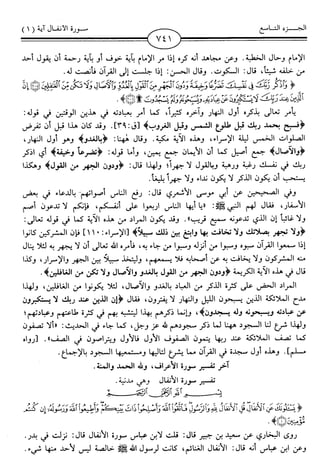 الجزء التاسع
٧٤١
سورة الأنفال آية (١)
الإمام وحال الخطبة. وعن مجاهد أنه كره إذا مر الإمام بآية خوف أو بآية رحمة أن يقول أحد
من خلفه شيئاً، قال: السكوت. وقال الحسن: إذا جلست إلى القرآن فأنصت له.
﴿ وَاذْكُر رَّبَّكَ فِي نَفْسِكَ تَضَرُّعًا وَخِيفَةً وَدُونَ الْجَهْرِ مِنَ الْقَوْلِ بِالْغُدُوِّ وَالْآصَالِ وَلَا تَكُن مِّنَ الْغَافِلِينَ ۝ إِنَّ
الَّذِينَ عِندَ رَبِّكَ لَا يَسْتَكْبِرُونَ عَنْ عِبَادَتِهِ وَيُسَبِّحُونَهُ وَلَهُ يَسْجُدُونَ ۝ ﴾
يأمر تعالى بذكره أول النهار وآخره كثيراً، كما أمر بعبادته في هذين الوقتين في قوله:
﴿فسبح بحمد ربك قبل طلوع الشمس وقبل الغروب﴾ [ق: ٣٩]. وقد كان هذا قبل أن تفرض
الصلوات الخمس ليلة الإسراء، وهذه الآية مكية. وقال هٰهنا: ﴿بالغدو﴾ وهو أول النهار،
﴿والآصال﴾ جمع أصيل كما أن الأيمان جمع يمين، وأما قوله: ﴿تضرعاً وخيفة﴾ أي اذكر
ربك في نفسك رغبة ورهبة وبالقول لا جهراً؛ ولهذا قال: ﴿ودون الجهر من القول﴾ وهكذا
يستحب أن يكون الذكر لا يكون نداء ولا جهراً بليغاً.
وفي الصحيحين عن أبي موسى الأشعري قال: رفع الناس أصواتهم بالدعاء في بعض
الأسفار، فقال لهم النبي ﷺ: «يا أيها الناس اربعوا على أنفسكم، فإنكم لا تدعون أصم
ولا غائباً إن الذي تدعونه سميع قريب». وقد يكون المراد من هذه الآية كما في قوله تعالى:
﴿ولا تجهر بصلاتك ولا تخافت بها وابتغ بين ذلك سبيلاً﴾ [الإسراء: ١١٠] فإن المشركين كانوا
إذا سمعوا القرآن سبوه وسبوا من أنزله وسبوا من جاء به، فأمره الله تعالى أن لا يجهر به لئلا ينال
منه المشركون ولا يخافت به عن أصحابه فلا يسمعهم، وليتخذ سبيلاً بين الجهر والإسرار، وكذا
قال في هذه الآية الكريمة ﴿ودون الجهر من القول بالغدو والآصال ولا تكن من الغافلين﴾.
المراد الحض على كثرة الذكر من العباد بالغدو والآصال، لئلا يكونوا من الغافلين، ولهذا
مدح الملائكة الذين يسبحون الليل والنهار لا يفترون، فقال ﴿إن الذين عند ربك لا يستكبرون
عن عبادته ويسبحونه وله يسجدون﴾، وإنما ذكرهم بهذا ليتشبه بهم في كثرة طاعتهم وعبادتهم؛
ولهذا شرع لنا السجود هٰهنا لما ذكر سجودهم لله عز وجل، كما جاء في الحديث: «ألا تصفون
كما تصف الملائكة عند ربها يتمون الصفوف الأول فالأول ويتراصون في الصف». [رواه
مسلم]. وهذه أول سجدة في القرآن مما يشرع لتاليها ومستمعها السجود بالإجماع.
آخر تفسير سورة الأعراف، ولله الحمد والمنة.
تفسير سورة الأنفال وهي مدنية.
﴿ يَسْأَلُونَكَ عَنِ الْأَنفَالِ قُلِ الْأَنفَالُ لِلَّهِ وَالرَّسُولِ فَاتَّقُوا اللَّهَ وَأَصْلِحُوا ذَاتَ بَيْنِكُمْ وَأَطِيعُوا اللَّهَ وَرَسُولَهُ إِن كُنتُم
مُّؤْمِنِينَ ۝ ﴾
روى البخاري عن سعيد بن جبير قال: قلت لابن عباس سورة الأنفال قال: نزلت في بدر.
وعن ابن عباس أنه قال: الأنفال الغنائم، كانت لرسول الله ﷺ خالصة ليس لأحد منها شيء.